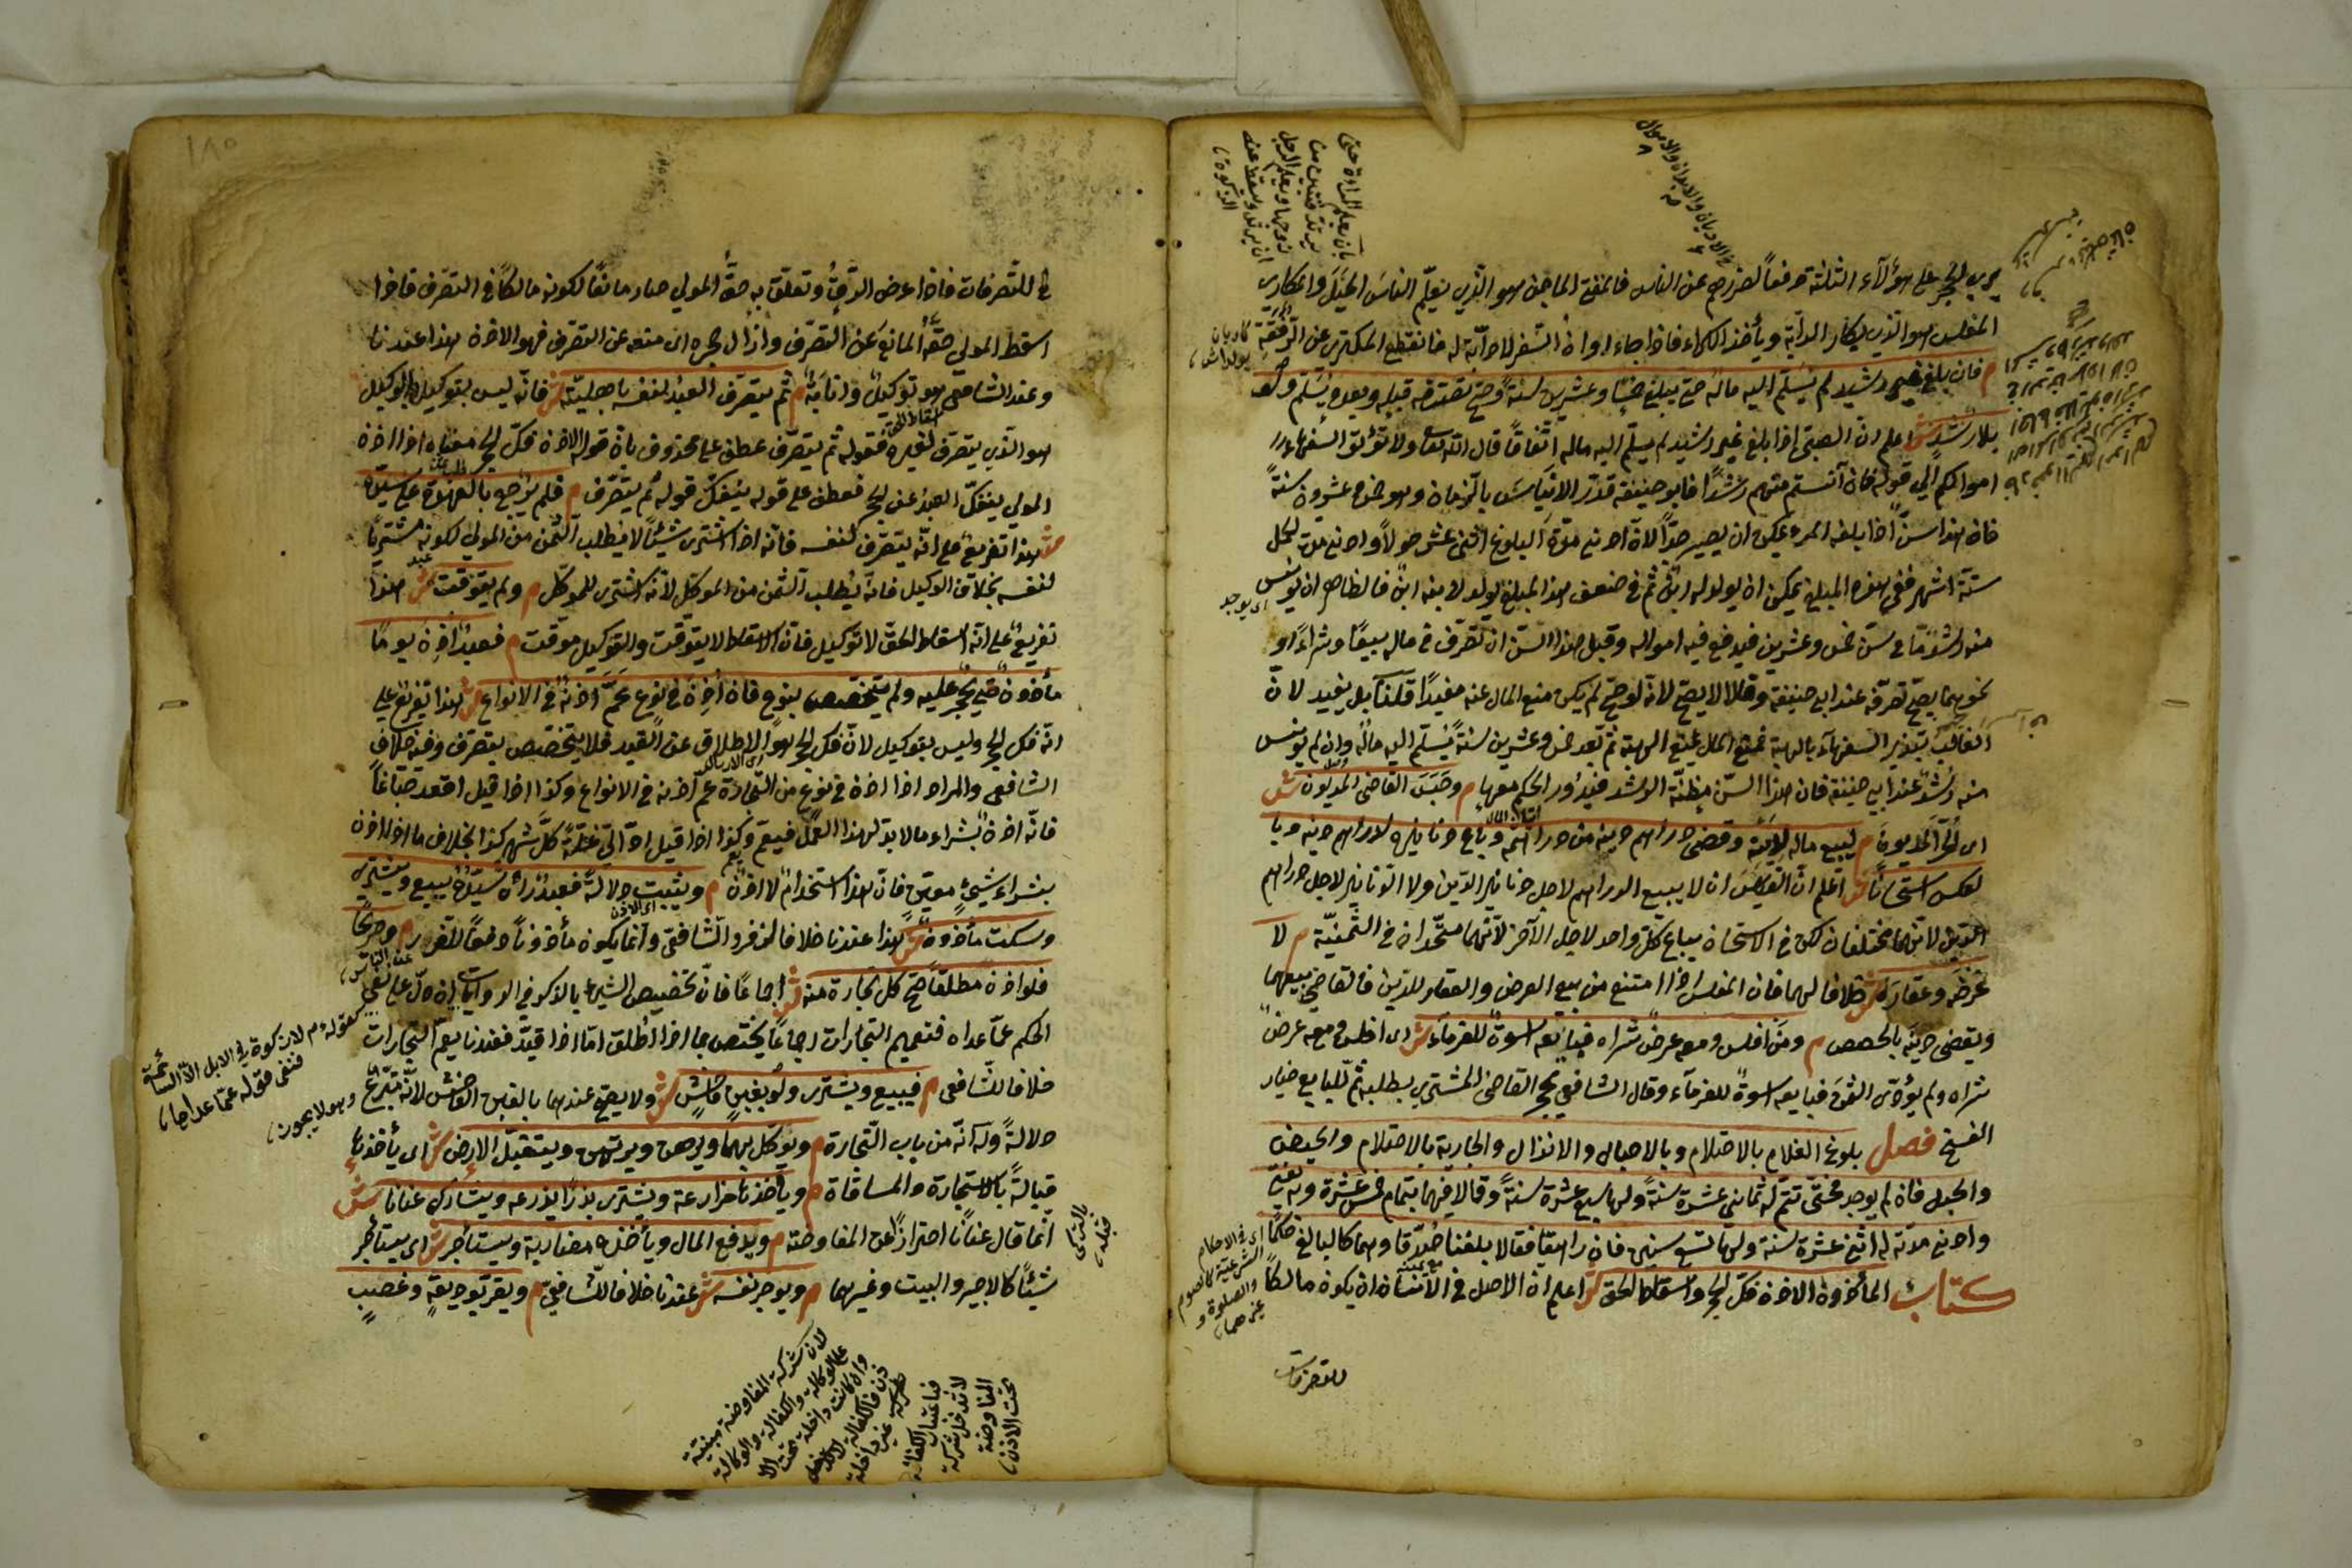 يجري الحجر على هؤلاء الثلثة دفعاً لضررهم عن الناس فالمفتي الماجن هو الذي يعلّم الناس الحيل والمكاري
المفلس هو الذي يكاري الدابّة ويأخذ الكراء فاذا جاء اوان السفر لا دابّة له فانقطع المكتري عن الرفقة
م فان بلغ غير رشيد لم يسلّم اليه ماله حتى يبلغ خمسًا وعشرين سنةً وصحّ تصرّفه قبله وبعده يسلّم ولو
بلا رشد ش اعلم ان الصبيّ اذا بلغ غير رشيد لم يسلّم اليه ماله اتّفاقًا قال الله تعالى ولا تؤتوا السفهاء
اموالكم الى قوله فان آنستم منهم رشدًا فابو حنيفة قدّر الايناس بالزمان وهو خمس وعشرون سنةً
فان هذا سنّ اذا بلغه المرء يمكن ان يصير جدًّا لان ادنى مدّة البلوغ اثنى عشر حولاً وادنى مدّة الحمل
ستّة اشهر ففي هذه المبلغ يمكن ان يولد له ابن ثم في ضعف هذا المبلغ يولد لابنه ابن فالظاهر ان يونس
منه رشدًا ما في سنّ خمس وعشرين فيدفع فيه امواله وقبل هذا السنّ ان تصرّف في ماله بيعًا وشراءً او
نحوهما يصحّ تصرّفه عند ابي حنيفة وقالا لا يصحّ لانه لو صحّ لم يكن منع المال عنه مفيدًا قلنا بل يفيد لانّ
الغالب تبذير السفهاء بالهبة فمنع المال يمنع الهبة ثم بعد خمس وعشرين سنةً يسلّم اليه ماله وان لم يونس
منه رشد عند ابي حنيفة فان هذا السنّ مظنّة الرشد فيدور الحكم معها م وحبس القاضي المديون ش
اي الحرّ المديون م ليبيع ماله لدينه وقضى دراهم دينه من دراهمه وباع دنانيره لدراهم دينه وبا
لعكس استحسانًا ش اعلم ان القياس ان لا يبيع الدراهم لاجل دنانير الدين ولا الدنانير لاجل دراهم
الدين لانهما مختلفان لكن في الاستحسان يباع كل واحد لاجل الآخر لانهما متّحدان في الثمنيّة م لا
عرضه وعقاره ش خلافا لهما فان المفلس اذا امتنع من بيع العرض والعقار للدين فالقاضي يبيعهما
ويقضى دينه بالحصص م ومن افلس ومعه عرض شراه فبايعه اسوة للغرماء ش اى افلس ومعه عرض
شراه ولم يؤدّى الثمن فبايعه اسوة للغرماء وقال الشافعي يحجر القاضى المشترى بطلبه ثم للبايع خيار
الفسخ فصل بلوغ الغلام بالاحتلام وبالاحبال والانزال والجارية بالاحتلام والحيض
والحبل فان لم يوجد فحتّى تتمّ له ثمانى عشرة سنةً ولها سبع عشرة سنةً وقالا فيهما بتمام خمس عشرة وبه يفتى
وادنى مدّته له اثنى عشرة سنة ولها تسع سنين فان راهقا فقالا بلغنا صُدّقا وهما كالبالغ حكمًا
كتاب المأذون الاذن فكّ الحجر واسقاط الحق ش اعلم ان الاصل في الانسان ان يكون مالكًا
للتصرفات
اى يوجد
اى في الاحكام
الشرعية كالصوم
والصلوة و
غيرهما
بان يعلم المراءة حتى
ترتد فتبين من
زوجها ويعلم الرجل
ان يرتد ويسقط عنه
الزكوة
١٨٥
للتصرفات فاذا عرض الرقّ وتعلّق به حقّ المولى صار مانعًا لكونه مالكًا في التصرّف فاذا
اسقط المولى حقّه المانع عن التصرّف وازال حجره اى منعه عن التصرّف فهو الاذن هذا عندنا
وعند الشافعى هو توكيل وانابة م ثم يتصرّف العبد لنفسه باهليته ش فانه ليس بتوكيل والوكيل
هو الذي يتصرّف لغيره فقوله ثم يتصرّف عطف على محذوف بان قوله الاذن فكّ الحجر معناه اذا اذن
المولى ينفكّ العبد عن الحجر فعطف على قوله ينفكّ قوله ثم يتصرّف م فلم يرجع بالعهدة على سيّده
ش هذا تفريع على انه يتصرف لنفسه فانه اذا اشترى شيئًا لا يطلب الثمن من المولى لكونه مشتريًا
لنفسه بخلاف الوكيل فانه يُطلب الثمن من الموكل لانه اشترى للموكّل م ولم يتوقّت ش هذا
تفريع على انه اسقاط الحق لا توكيل فان الاسقاط لا يتوقّت والتوكيل موقت م فعبد اُذن يومًا
مأذون حتى يُحجر عليه ولم يتخصّص بنوع فان اُذن في نوع عمّ اذنه في الانواع ش هذا تفريع على
انه فكّ الحجر وليس بتوكيل لانّ فكّ الحجر هو الاطلاق عن القيد فلا يتخصّص بتصرّف وفيه خلاف
الشافعى والمراد اذا اذن في نوع من التجارة عمّ اذنه في الانواع وكذا اذا قيل اقعد صبّاغًا
فانه اذن بشراء ما لا بدّ لهذا العمل فيعمّ وكذا اذا قيل ادّ اليّ غلّة كلّ شهر كذا بخلاف ما اذا اذن
بشراء شيء معيّن فانّ هذا استخدام لا اذن م ويثبت دلالةً فعبد رآه سيّده يبيع ويشترى
وسكت مأذون ش هذا عندنا خلافا لزفر والشافعىّ وانما يكون مأذونًا دفعًا للغرر م وصريحًا
فلو اذن مطلقًا صحّ كل تجارة منه ش اجماعًا فانّ تخصيص الشيء بالذكر في الروايات يدلّ على نفى
الحكم عمّا عداه فتعميم التجارات اجماعًا يختص بما اذا اطلق امّا اذا قيّد فعندنا يعمّ التجارات
خلافا للشافعى م فيبيع ويشترى ولو بغبن فاحش ش ولا يصحّ عندهما بالغبن الفاحش لانه تبرّع
دلالةً وله انّه من باب التجارة م ويوكّل بهما ويرهن ويرتهن ويتقبّل الارض ش اى يأخذها
قبالةً بالاستيجار والمساقاة م ويأخذها مزارعة ويشترى بذرًا يزرعه ويشارك عنانا ش
انما قال عنانًا احترازًا عن المفاوضة م ويدفع المال ويأخذه مضاربة ويستأجر ش اى يستأجر
شيئًا كالاجير والبيت وغيرهما م ويوجر نفسه ش عندنا خلافا للشافعىّ م ويقرّ بوديعةٍ وغصبٍ
كقوله م لا زكوة في الابل الا السائمة
فنفى قوله عمّا عداها
وهو لا يجوز
لان شركة المفاوضة مبنيّة
على الوكالة والكفالة والوكالة
وان كانت داخلة تحت الا
ذن فالكفالة
غير داخلة
لا تدخل شركة
المفاوضة
تحت الاذن